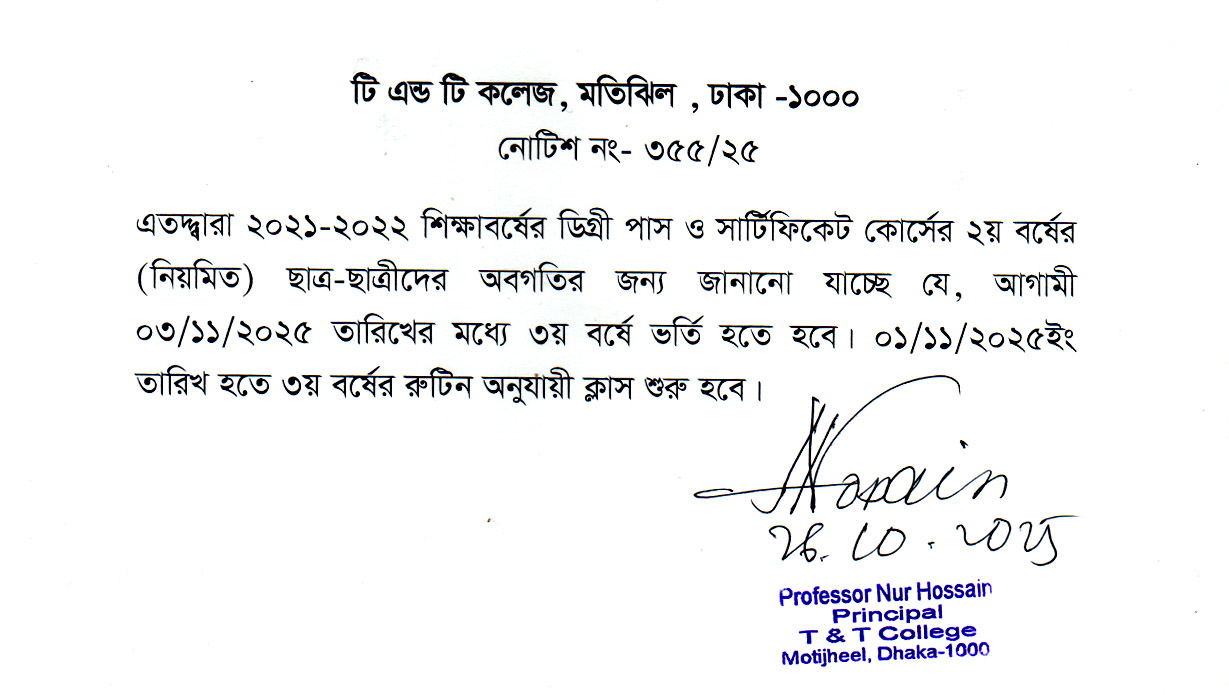 টি এন্ড টি কলেজ, মতিঝিল , ঢাকা -১০০০
নোটিশ নং- ৩৫৫/২৫
এতদ্দ্বারা ২০২১-২০২২ শিক্ষাবর্ষের ডিগ্রী পাস ও সার্টিফিকেট কোর্সের ২য় বর্ষের
(নিয়মিত) ছাত্র-ছাত্রীদের অবগতির জন্য জানানো যাচ্ছে যে, আগামী
০৩/১১/২০২৫ তারিখের মধ্যে ৩য় বর্ষে ভর্তি হতে হবে। ০১/১১/২০২৫ইং
তারিখ হতে ৩য় বর্ষের রুটিন অনুযায়ী ক্লাস শুরু হবে।
NHossain
২৬.১০.২০২৫
Professor Nur Hossain
Principal
T & T College
Motijheel, Dhaka-1000